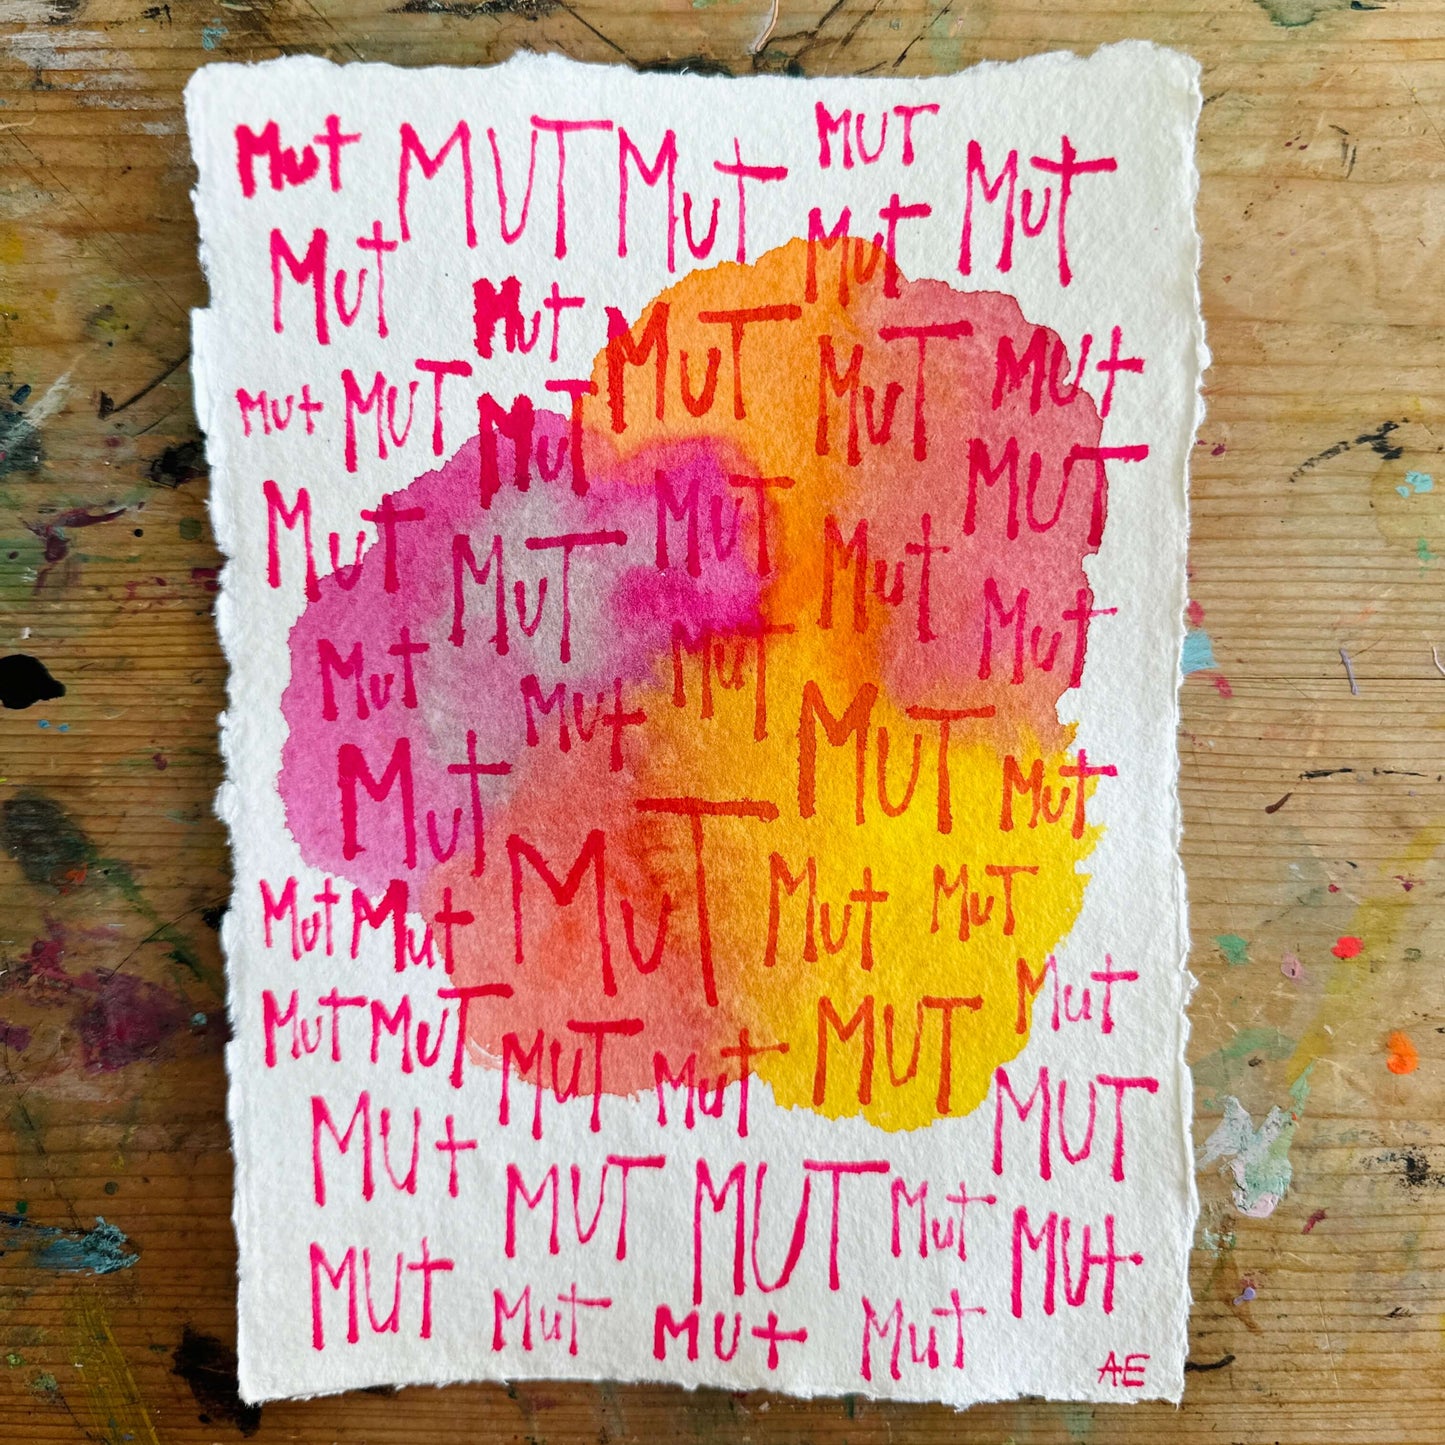 Mut MUT Mut MUT Mut
Mut Mut
Mut MuT MuT Mut
Mut MUT MuT
Mut MuT MuT MUT
Mut Mut
Mut Mut MuT
Mut MuT Mut
MuT Mut MuT
Mut Mut
MuT MuT MUT Mut
MuT Mut
MUt MUT
MUT MUT Mut MUt
MUt Mut Mut Mut
AE